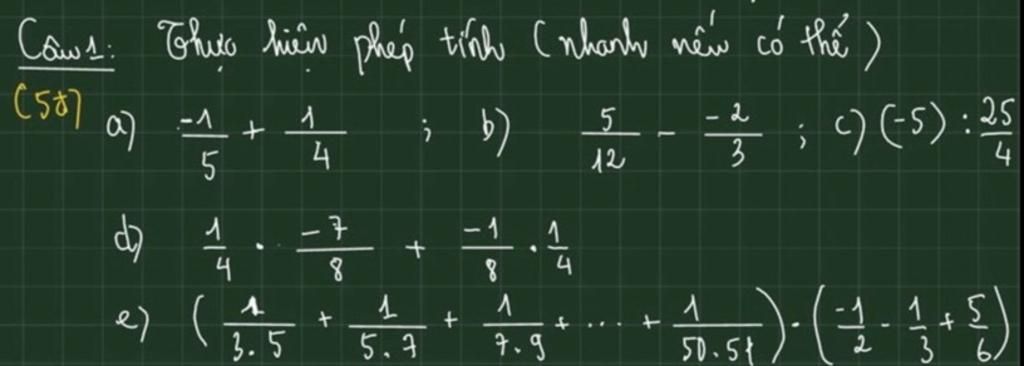 Câu 1: Thực hiện phép tính (nhanh nếu có thể)
(5đ) a) -1/5 + 1/4 ; b) 5/12 - -2/3 ; c) (-5) : 25/4
d) 1/4 . -7/8 + -1/8 . 1/4
e) (1/3.5 + 1/5.7 + 1/7.9 + ... + 1/50.51) . (-1/2 - 1/3 + 5/6)